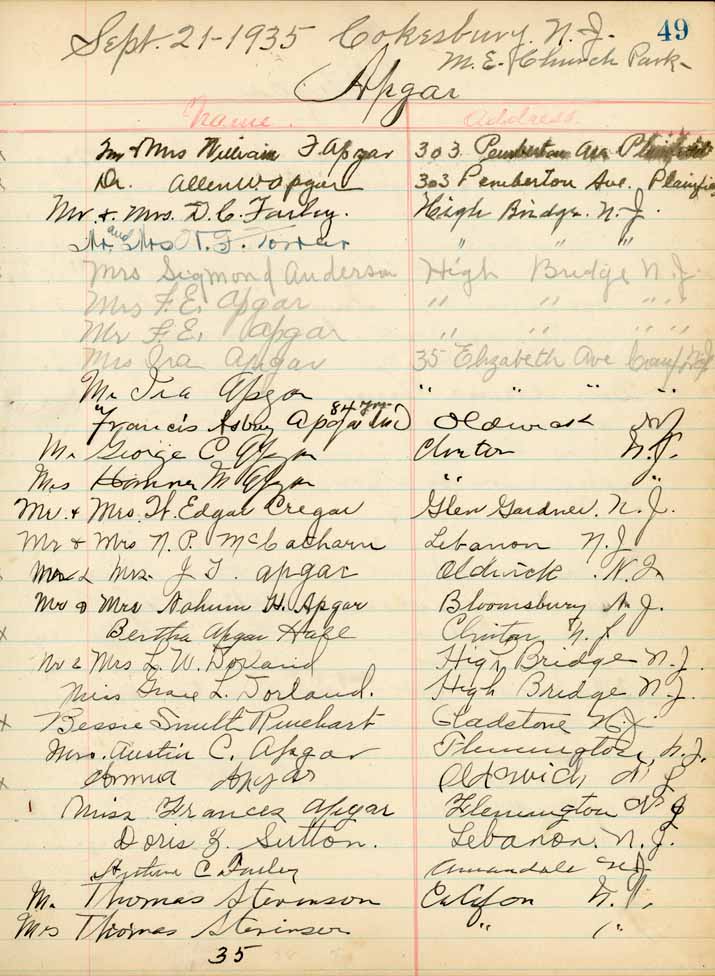 49
Sept. 21-1935 Cokesbury. N. J.
M. E. Church Park-
Apgar
Name. Address.
Mr & Mrs William F. Apgar 303 Pemberton Ave Plainfield
Dr. Allen W Apgar 303 Pemberton Ave. Plainfie
Mr. & Mrs. D. C. Farley. High Bridge. N. J.
Mr. and Mrs " " "
Mrs Sigmond Anderson High Bridge N. J.
Mrs F. E. Apgar " " " "
Mr F. E. Apgar " " " "
Mrs Ira Apgar 35 Elizabeth Ave Cranf NJ
Mr Ira Apgar " " " "
Francis Asbury Apgar 84 yrs Oldwick NJ
Mr George C Apgar Clinton N. J.
Mrs M Apgar " "
Mr. & Mrs. H. Edgar Cregar Glen Gardner. N. J.
Mr & Mrs N. P. McCatharn Lebanon N. J
Mr & Mrs. J. F. apgar Oldwick . N. J.
Mr & Mrs Nahum H. Apgar Bloomsbury N. J.
Bertha Apgar Hall Clinton N. J
Mr & Mrs L. W. Dorland High Bridge N. J.
Miss Grace L. Dorland. High Bridge N. J.
Bessie Smith Rinehart Gladstone N. J.
Mrs. Austin C. Apgar Flemington, N. J.
Anna Apgar Oldwick N. J
Miss Frances Apgar Flemington N J
Doris Y. Sutton. Lebanon. N. J.
C. Farley Annandale N. J.
Mr. Thomas Stevinson Califon N. J.
Mrs Thomas Stevinson " "
35